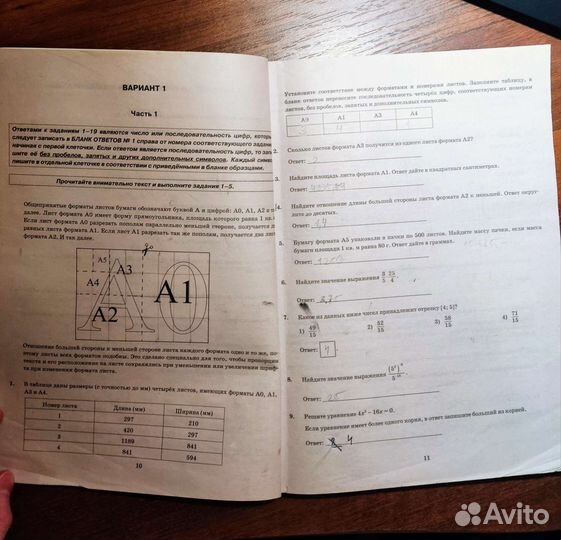 ВАРИАНТ 1
Часть 1
Ответами к заданиям 1–19 являются число или последовательность цифр,
следует записать в БЛАНК ОТВЕТОВ № 1 справа от номера соответствующего
начиная с первой клеточки. Если ответом является последовательность цифр, то
шите её без пробелов, запятых и других дополнительных символов. Каждый
пишите в отдельной клеточке в соответствии с приведёнными в бланке образцами.
Прочитайте внимательно текст и выполните задание 1–5.
Общепринятые форматы листов бумаги обозначают буквой А и цифрой: А0, А1, А2 и
далее. Лист формата А0 имеет форму прямоугольника, площадь которого равна 1 кв.
Если лист формата А0 разрезать пополам параллельно меньшей стороне, получается
равных листа формата А1. Если лист А1 разрезать так же пополам, получается два
формата А2. И так далее.
A5
A3
A4
A2
A1
Отношение большей стороны к меньшей стороне листа каждого формата одно и то же,
этому листы всех форматов подобны. Это сделано специально для того, чтобы пропорции
текста и его расположение на листе сохранялись при уменьшении или увеличении
та при изменении формата листа.
1. В таблице даны размеры (с точностью до мм) четырёх листов, имеющих форматы А0, А1,
А3 и А4.
Номер листа Длина (мм) Ширина (мм)
1 297 210
2 420 297
3 1189 841
4 841 594
10
Установите соответствие между форматами и номерами листов. Заполните таблицу, в
бланк ответов перенесите последовательность четырёх цифр, соответствующих номерам
листов, без пробелов, запятых и дополнительных символов.
А0 А1 А3 А4
3 4
2.
Сколько листов формата А3 получится из одного листа формата А2?
Ответ: 2
3.
Найдите площадь листа формата А1. Ответ дайте в квадратных сантиметрах.
Ответ:
4.
Найдите отношение длины большей стороны листа формата А2 к меньшей. Ответ окру-
глите до десятых.
Ответ: 1,4
5.
Бумагу формата А5 упаковали в пачки по 500 листов. Найдите массу пачки, если масса
бумаги площади 1 кв. м равна 80 г. Ответ дайте в граммах.
Ответ:
6.
Найдите значение выражения
Ответ:
7. Какое из данных ниже чисел принадлежит отрезку [4; 5]?
1) 49/15 2) 52/15 3) 58/15 4) 71/15
Ответ: 4
8.
Найдите значение выражения
Ответ: 25
9. Решите уравнение 4x² – 16x = 0.
Если уравнение имеет более одного корня, в ответ запишите больший из корней.
Ответ: 4
11
Avito